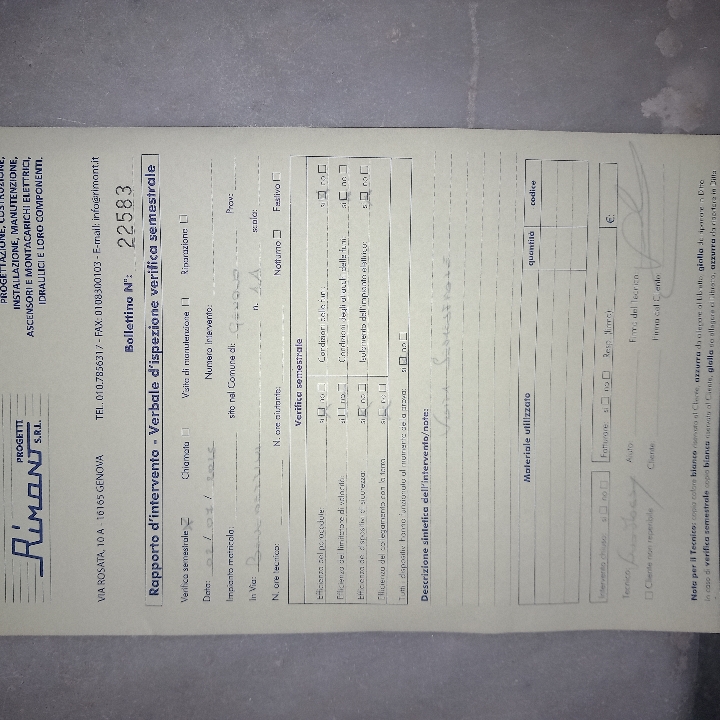 Rimont PROGETTI S.R.L.
PROGETTAZIONE, COSTRUZIONE,
INSTALLAZIONE, MANUTENZIONE,
ASCENSORI E MONTACARICHI ELETTRICI,
IDRAULICI E LORO COMPONENTI.
VIA ROSATA, 10 A - 16165 GENOVA TEL. 010.7856317 - FAX: 0108300103 - E-mail: info@rimont.it
Bollettino N°: 22583
Rapporto d'intervento - Verbale d'ispezione verifica semestrale
Verifica semestrale Chiamata Visita di manutenzione Riparazione
Data: / / Numero intervento:
Impianto matricola: sito nel Comune di: Genova Prov.:
In Via: n. scala:
N. ore tecnico: N. ore aiutante: Notturno Festivo
Verifica semestrale
Efficienza del paracadute: si no Condizioni delle funi: si no
Efficienza del limitatore di velocità: si no Condizioni degli attacchi delle funi: si no
Efficienza dei dispositivi di sicurezza: si no Isolamento dell'impianto elettrico: si no
Efficienza del collegamento con la terra: si no
Tutti i dispositivi hanno funzionato al momento della prova: si no
Descrizione sintetica dell'intervento/note:
Materiale utilizzato quantità codice
Intervento chiuso: si no Fatturare: si no Resp. (firma): €:
Tecnico: Aiuto: Firma del Tecnico
Cliente non reperibile Cliente: Firma del Cliente
Nota per il Tecnico: copia colore bianco riservata al Cliente, azzurra da allegare al Libretto, gialla da riportare in Ditta
In caso di verifica semestrale copia bianca riservata al Cliente, gialla da allegare al Libretto, azzurra da riportare in Ditta